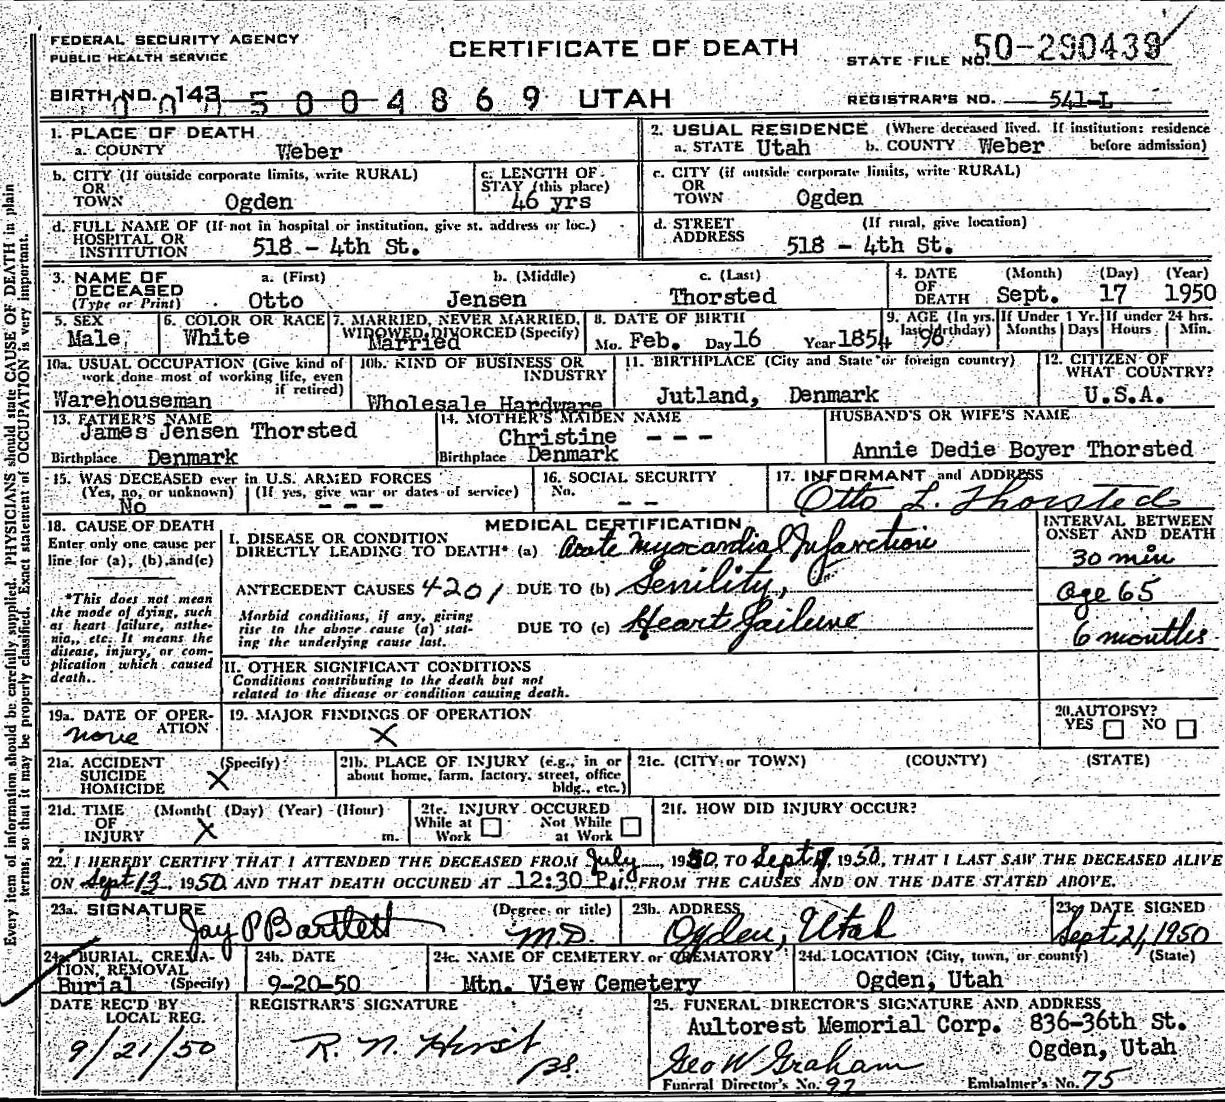 FEDERAL SECURITY AGENCY
PUBLIC HEALTH SERVICE
CERTIFICATE OF DEATH
STATE FILE NO. 50-290439
BIRTH NO. 143 5004869 UTAH
REGISTRAR'S NO. 541-L
1. PLACE OF DEATH
a. COUNTY Weber
2. USUAL RESIDENCE (Where deceased lived. If institution: residence before admission)
a. STATE Utah b. COUNTY Weber
b. CITY (If outside corporate limits, write RURAL)
OR
TOWN Ogden
c. LENGTH OF
STAY (this place)
46 yrs
c. CITY (if outside corporate limits, write RURAL)
OR
TOWN Ogden
d. FULL NAME OF (If not in hospital or institution, give st. address or loc.)
HOSPITAL OR
INSTITUTION 518 - 4th St.
d. STREET (If rural, give location)
ADDRESS 518 - 4th St.
3. NAME OF
DECEASED
(Type or Print)
a. (First) b. (Middle) c. (Last)
Otto Jensen Thorsted
4. DATE (Month) (Day) (Year)
OF
DEATH Sept. 17 1950
5. SEX
Male
6. COLOR OR RACE
White
7. MARRIED, NEVER MARRIED,
WIDOWED, DIVORCED (Specify)
Married
8. DATE OF BIRTH
Mo. Feb. Day 16 Year 1854
9. AGE (In yrs.
last birthday)
96
If Under 1 Yr.
Months Days
If under 24 hrs.
Hours Min.
10a. USUAL OCCUPATION (Give kind of
work done most of working life, even
if retired)
Warehouseman
10b. KIND OF BUSINESS OR
INDUSTRY
Wholesale Hardware
11. BIRTHPLACE (City and State or foreign country)
Jutland, Denmark
12. CITIZEN OF
WHAT COUNTRY?
U.S.A.
13. FATHER'S NAME
James Jensen Thorsted
Birthplace Denmark
14. MOTHER'S MAIDEN NAME
Christine - - -
Birthplace Denmark
HUSBAND'S OR WIFE'S NAME
Annie Dedie Boyer Thorsted
15. WAS DECEASED ever in U.S. ARMED FORCES
(Yes, no, or unknown) (If yes, give war or dates of service)
No - - -
16. SOCIAL SECURITY
No.
- -
17. INFORMANT and ADDRESS
Otto L. Thorsted
18. CAUSE OF DEATH
Enter only one cause per
line for (a), (b), and (c)
*This does not mean
the mode of dying, such
as heart failure, asthe-
nia, etc. It means the
disease, injury, or com-
plication which caused
death.
MEDICAL CERTIFICATION
INTERVAL BETWEEN
ONSET AND DEATH
I. DISEASE OR CONDITION
DIRECTLY LEADING TO DEATH* (a) Acute Myocardial Infarction 30 min
ANTECEDENT CAUSES 4201 DUE TO (b) Senility, age 65
Morbid conditions, if any, giving
rise to the above cause (a) stat-
ing the underlying cause last.
DUE TO (c) Heart Failure 6 months
II. OTHER SIGNIFICANT CONDITIONS
Conditions contributing to the death but not
related to the disease or condition causing death.
19a. DATE OF OPER-
ATION
none
19. MAJOR FINDINGS OF OPERATION
X
20. AUTOPSY?
YES NO
21a. ACCIDENT (Specify)
SUICIDE
HOMICIDE X
21b. PLACE OF INJURY (e.g., in or
about home, farm, factory, street, office
bldg., etc.)
21c. (CITY or TOWN) (COUNTY) (STATE)
21d. TIME (Month) (Day) (Year) (Hour)
OF
INJURY X m.
21e. INJURY OCCURED
While at Work Not While at Work
21f. HOW DID INJURY OCCUR?
22. I HEREBY CERTIFY THAT I ATTENDED THE DECEASED FROM July, 1950, TO Sept 17, 1950, THAT I LAST SAW THE DECEASED ALIVE
ON Sept 13, 1950 AND THAT DEATH OCCURED AT 12:30 P.M. FROM THE CAUSES AND ON THE DATE STATED ABOVE.
23a. SIGNATURE (Degree or title)
Jay P Bartlett M.D.
23b. ADDRESS
Ogden, Utah
23c. DATE SIGNED
Sept. 21, 1950
24a. BURIAL, CREMA-
TION, REMOVAL
(Specify)
Burial
24b. DATE
9-20-50
24c. NAME OF CEMETERY or CREMATORY
Mtn. View Cemetery
24d. LOCATION (City, town, or county) (State)
Ogden, Utah
DATE REC'D BY
LOCAL REG.
9/21/50
REGISTRAR'S SIGNATURE
R. N. Hirst
25. FUNERAL DIRECTOR'S SIGNATURE AND ADDRESS
Aultorest Memorial Corp. 836-36th St.
Ogden, Utah
Geo W Graham
Funeral Director's No. 97 Embalmer's No. 75
Every item of information should be carefully supplied. PHYSICIANS should state CAUSE OF DEATH in plain
terms, so that it may be properly classified. Exact statement of OCCUPATION is very important.